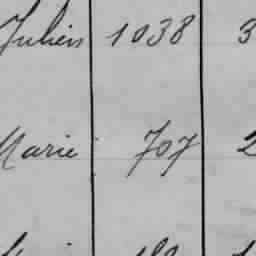 Julien 1038 3
Marie 707 2